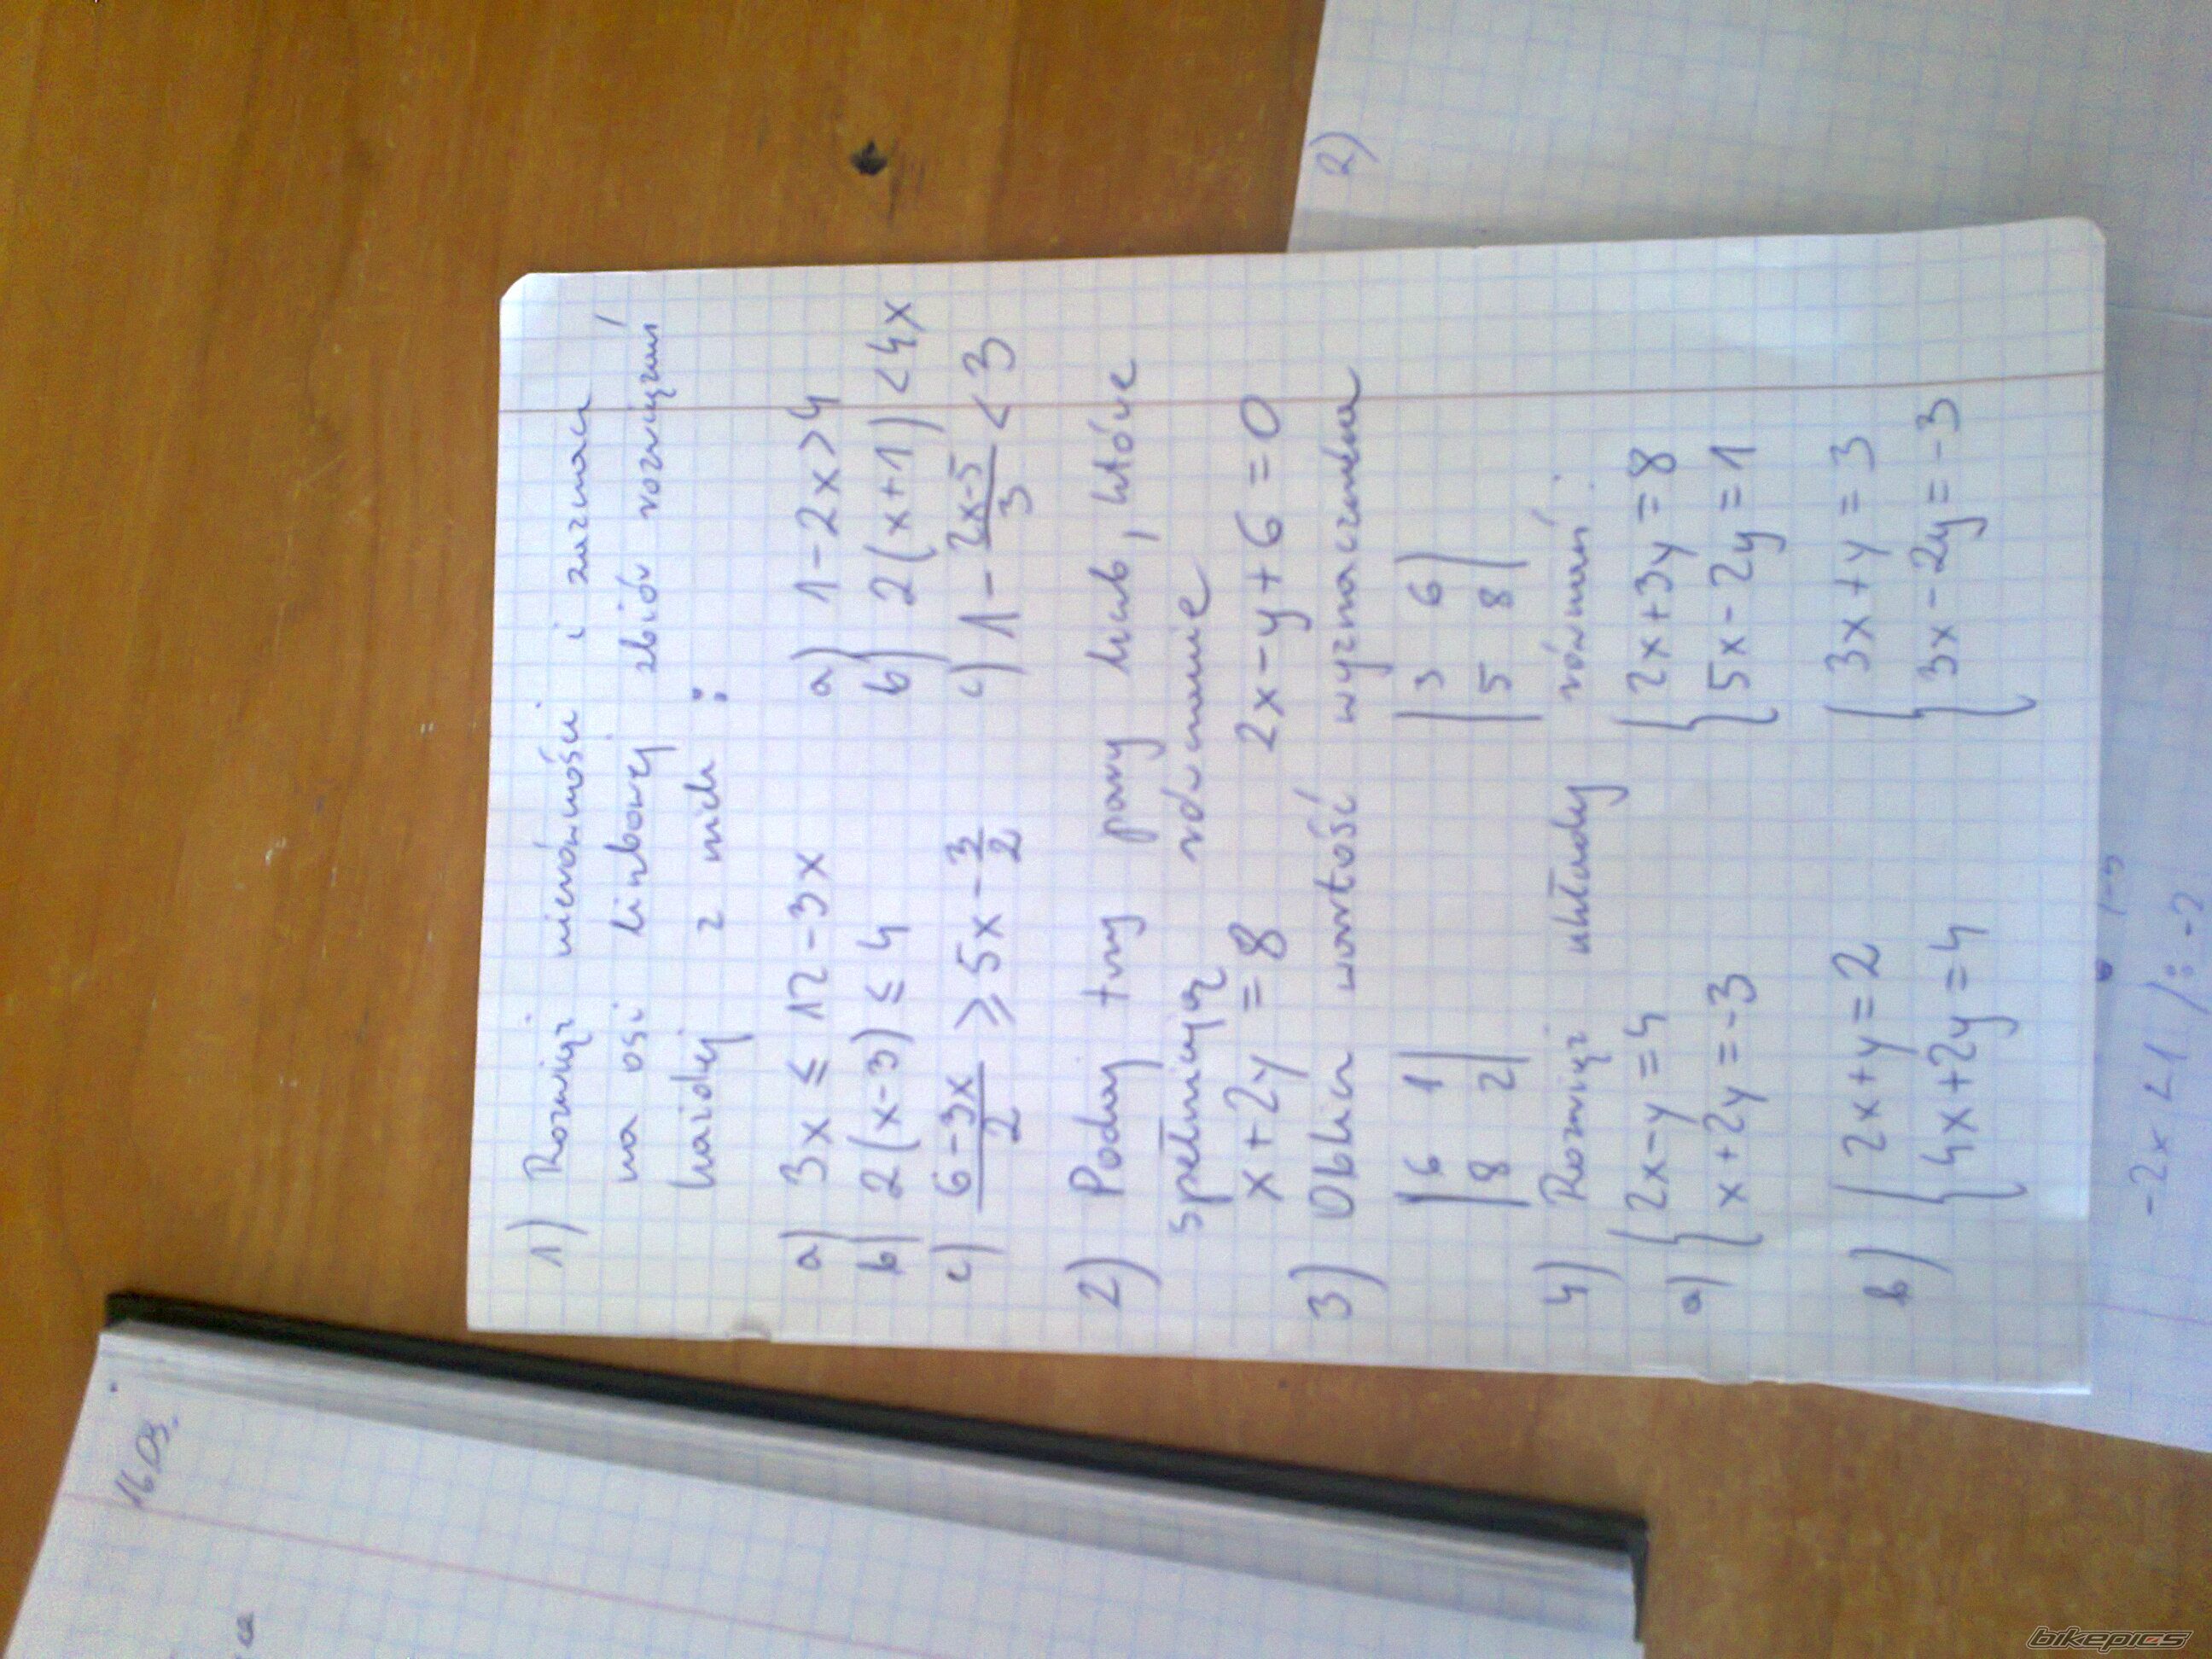 1) Rozwiąż nierówności i zaznacz
na osi liczbowej zbiór rozwiązań
każdej z nich :
a) 3x ≤ 12-3x a) 1-2x>4
b) 2(x-3) ≤ 4 b) 2(x+1)<4x
c) \frac{6-3x}{2} ≥ 5x - \frac{3}{2} c) 1 - \frac{2x-5}{3} < 3
2) Podaj trzy pary liczb, które
spełniają równanie
x+2y = 8 2x-y+6=0
3) Oblicz wartość wyznacznika
|6 1| |3 6|
|8 2| |5 8|
4) Rozwiąż układy równań:
a) { 2x-y=4 { 2x+3y=8
x+2y=-3 5x-2y=1
b) { 2x+y=2 { 3x+y=3
4x+2y=4 3x-2y=-3
2)
-2x<1 /:-2
16.03.
bikepics